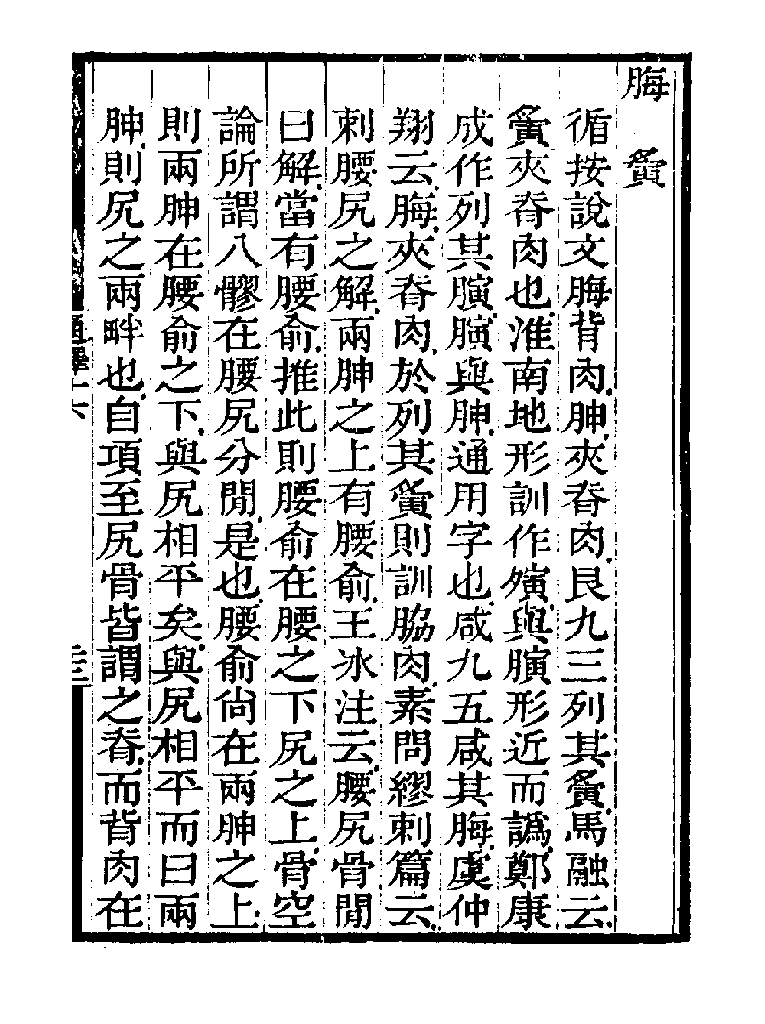 脢 夤
循按説文脢背肉胂夾脊肉艮九三列其夤馬融云
夤夾脊肉也淮南地形訓作㱓與䐺形近而譌鄭康
成作列其䐺䐺與胂通用字也咸九五咸其脢虞仲
翔云脢夾脊肉於列其夤則訓脇肉素問繆刺篇云
刺腰尻之解兩胂之上有腰俞王冰注云腰尻骨閒
曰解當有腰俞推此則腰俞在腰之下尻之上骨空
論所謂八髎在腰尻分閒是也腰俞尙在兩胂之上
則兩胂在腰俞之下與尻相平矣與尻相平而曰兩
胂則尻之兩畔也自項至尻骨皆謂之脊而背肉在
通釋十六